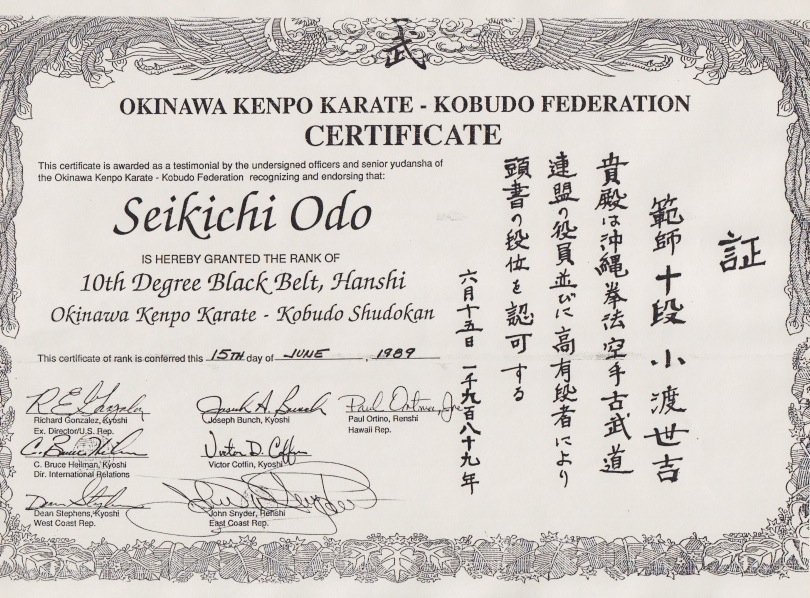 武
OKINAWA KENPO KARATE - KOBUDO FEDERATION
CERTIFICATE
This certificate is awarded as a testimonial by the undersigned officers and senior yudansha of
the Okinawa Kenpo Karate - Kobudo Federation recognizing and endorsing that:
Seikichi Odo
IS HEREBY GRANTED THE RANK OF
10th Degree Black Belt, Hanshi
Okinawa Kenpo Karate - Kobudo Shudokan
This certificate of rank is conferred this 15TH day of JUNE, 1989
Richard Gonzalez, Kyoshi
Ex. Director/U.S. Rep.
Joseph A. Bunch
Joseph Bunch, Kyoshi
Paul Ortino, Jr.
Paul Ortino, Renshi
Hawaii Rep.
C. Bruce Heilman
C. Bruce Heilman, Kyoshi
Dir. International Relations
Victor D. Coffin
Victor Coffin, Kyoshi
Dean Stephens, Kyoshi
West Coast Rep.
John Snyder, Renshi
East Coast Rep.
証
範師十段小渡世吉
貴殿は沖縄拳法空手古武道
連盟の役員並びに高有段者により
頭書の段位を認可する
六月十五日 一千九百八十九年